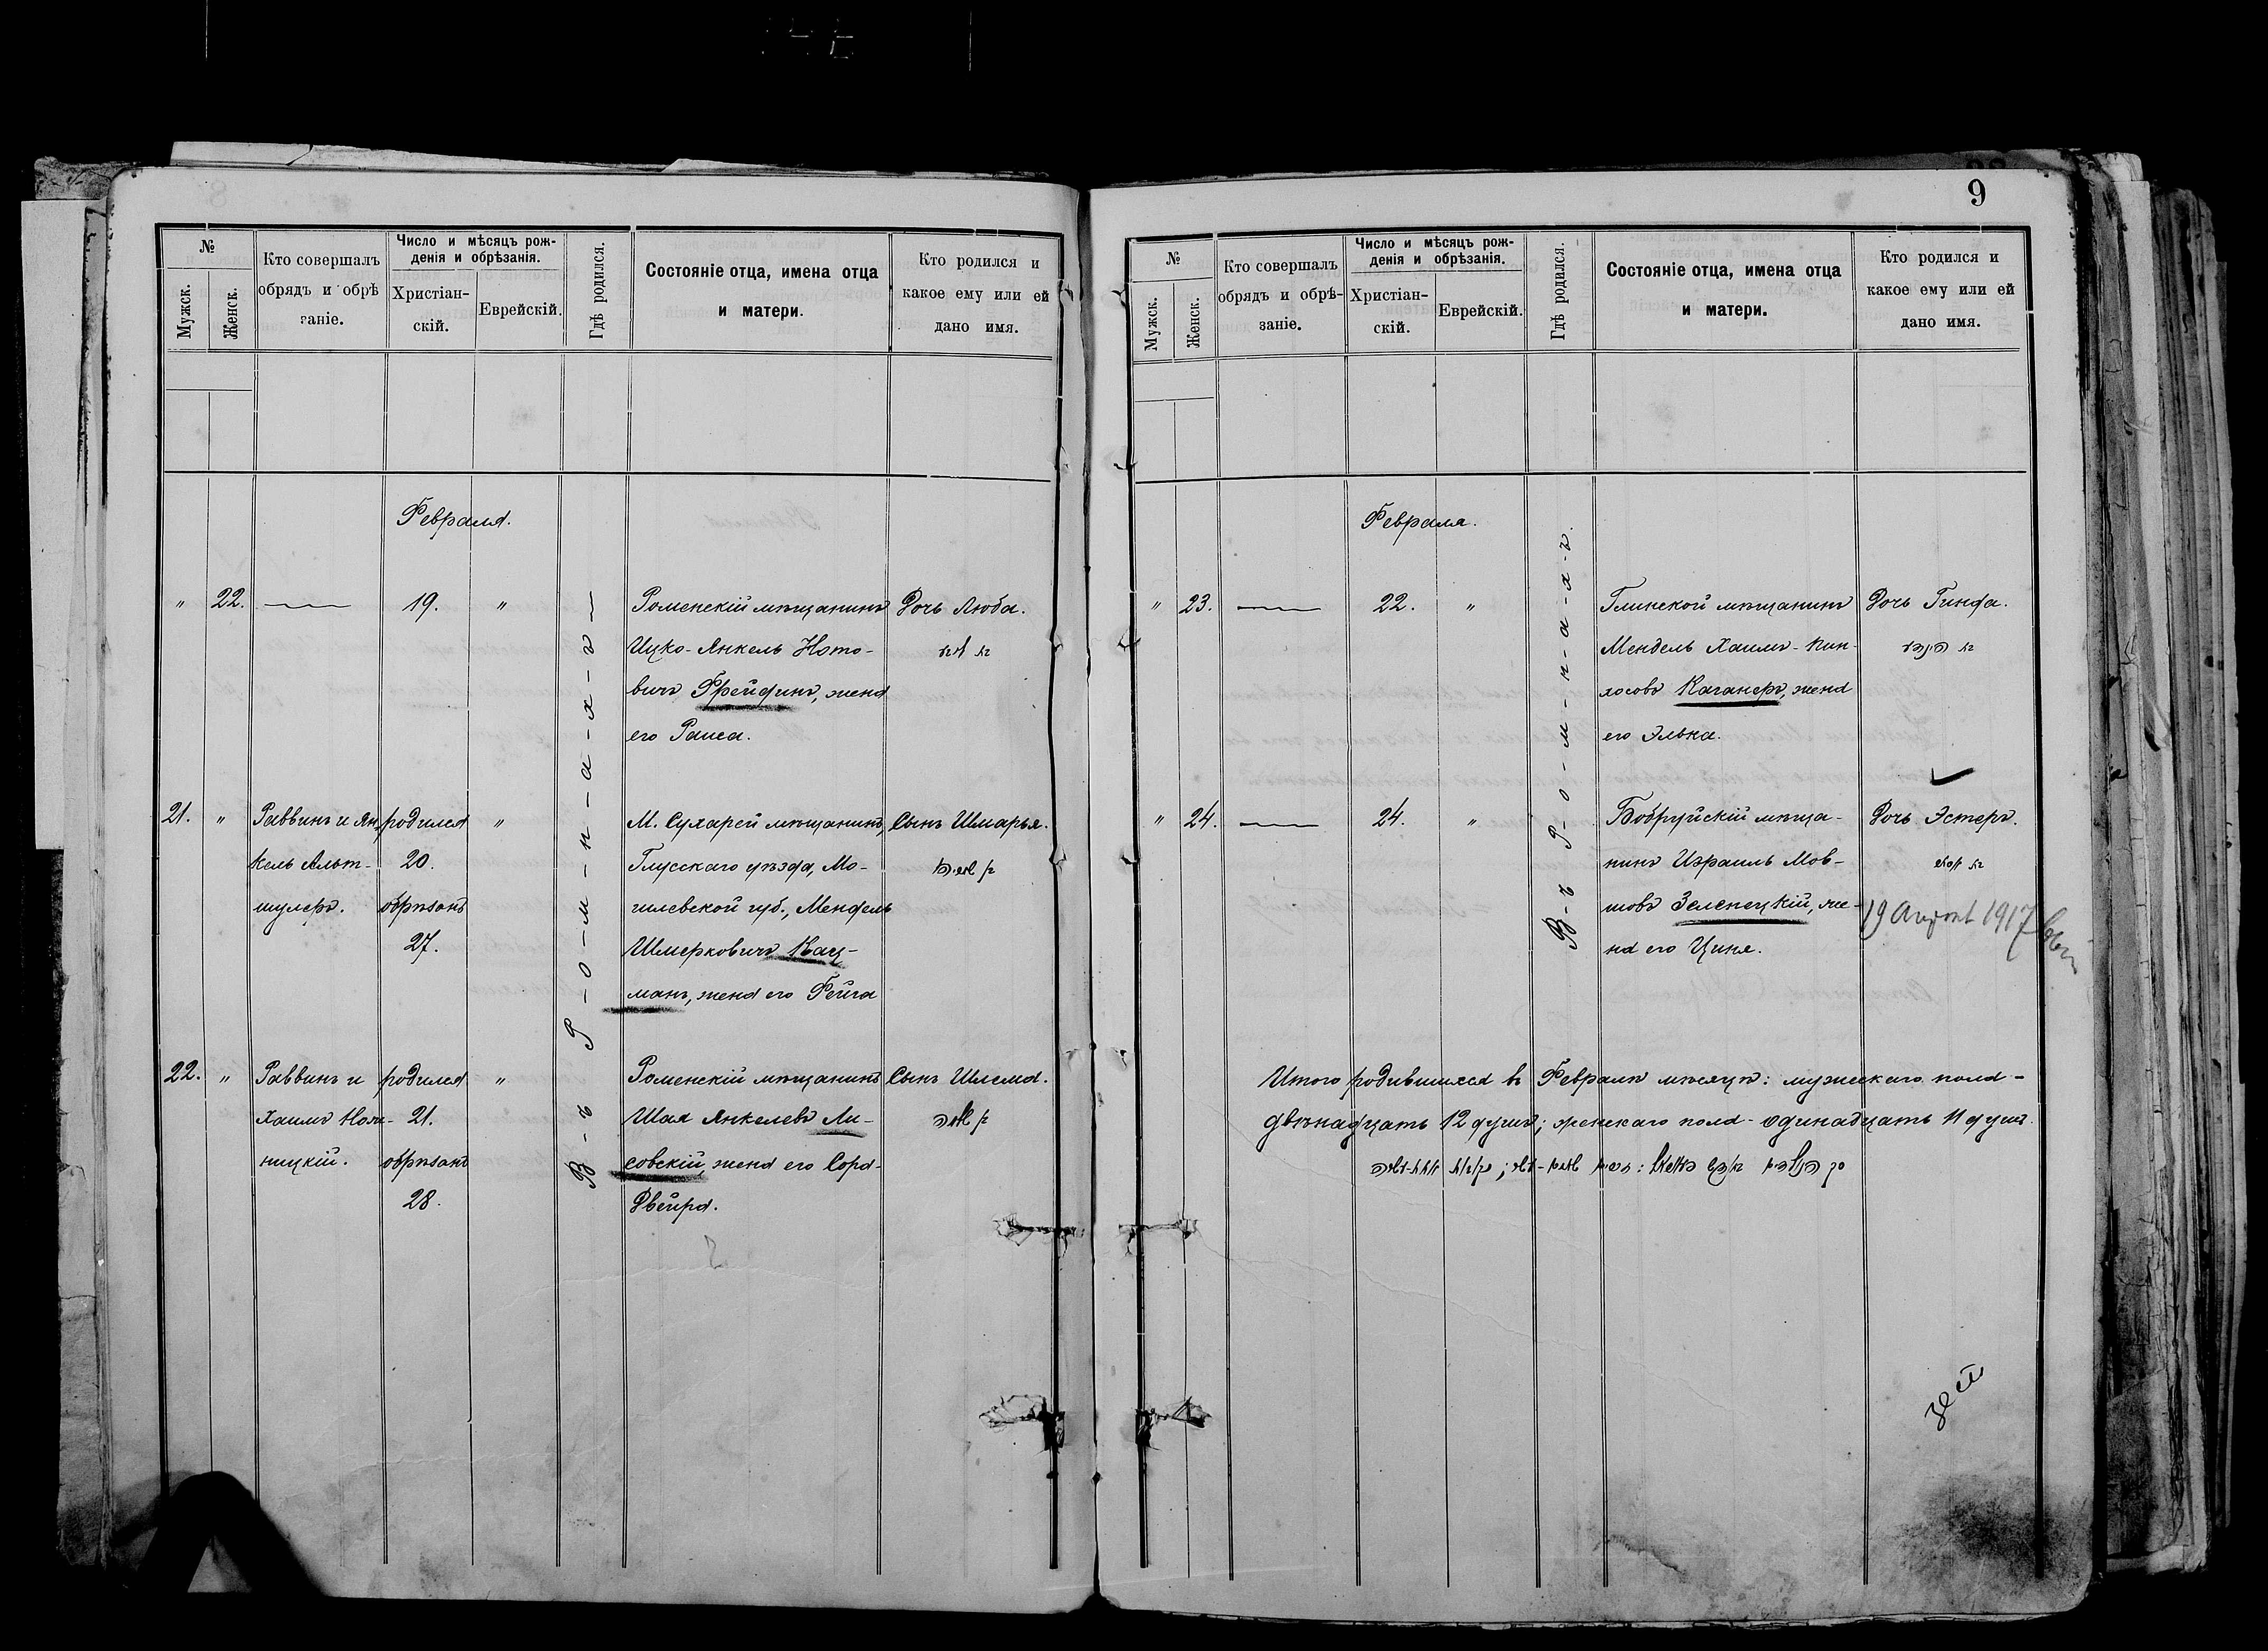 №
Мужск.
Женск.
Кто совершалъ
обрядъ и обрѣ
заніе.
Число и мѣсяцъ рож-
денія и обрѣзанія.
Христіан-
скій.
Еврейскій.
Гдѣ родился.
Состояніе отца, имена отца
и матери.
Кто родился и
какое ему или ей
дано имя.
Февраля.
В-ъ Р-о-м-н-а-х-ъ-
" 22. — 19. "
Роменскій мѣщанинъ
Ицко-Янкель Ното-
вичъ Фрейдинъ, жена
его Раиса.
Дочь Люба.
21. "
Раввинъ и Ян
кель Альт-
шулеръ.
родился
20.
обрѣзанъ
27.
"
М. Сухарей мѣщанинъ,
Глусскаго уѣзда, Мо-
гилевской губ., Мендель
Шмерковичъ Кац-
манъ, жена его Фейга
Сынъ Шмарья.
22. "
Раввинъ и
Хаимъ
ницкій.
родился
21.
обрѣзанъ
28.
"
Роменскій мѣщанинъ
Шая Янкелевъ Ли-
совскій, жена его Сора-
Двейра.
Сынъ Шлема.
9
№
Мужск.
Женск.
Кто совершалъ
обрядъ и обрѣ-
заніе.
Число и мѣсяцъ рож-
денія и обрѣзанія.
Христіан-
скій.
Еврейскій.
Гдѣ родился.
Состояніе отца, имена отца
и матери.
Кто родился и
какое ему или ей
дано имя.
Февраля.
В-ъ Р-о-м-н-а-х-ъ.
" 23. — 22. "
Глинской мѣщанинъ
Мендель Хаимъ-Пин-
хосовъ Каганеръ, жена
его Элька.
Дочь Гинда.
" 24. — 24. "
Бобруйскій мѣща-
нинъ Израиль Мов-
шовъ Зеленецкій, же-
на его Циня.
Дочь Эстеръ.
19 1917
Итого родившихся въ Февралѣ мѣсяцѣ: мужескаго пола-
двѣнадцать 12 душъ; женскаго пола- одинадцать 11 душъ.